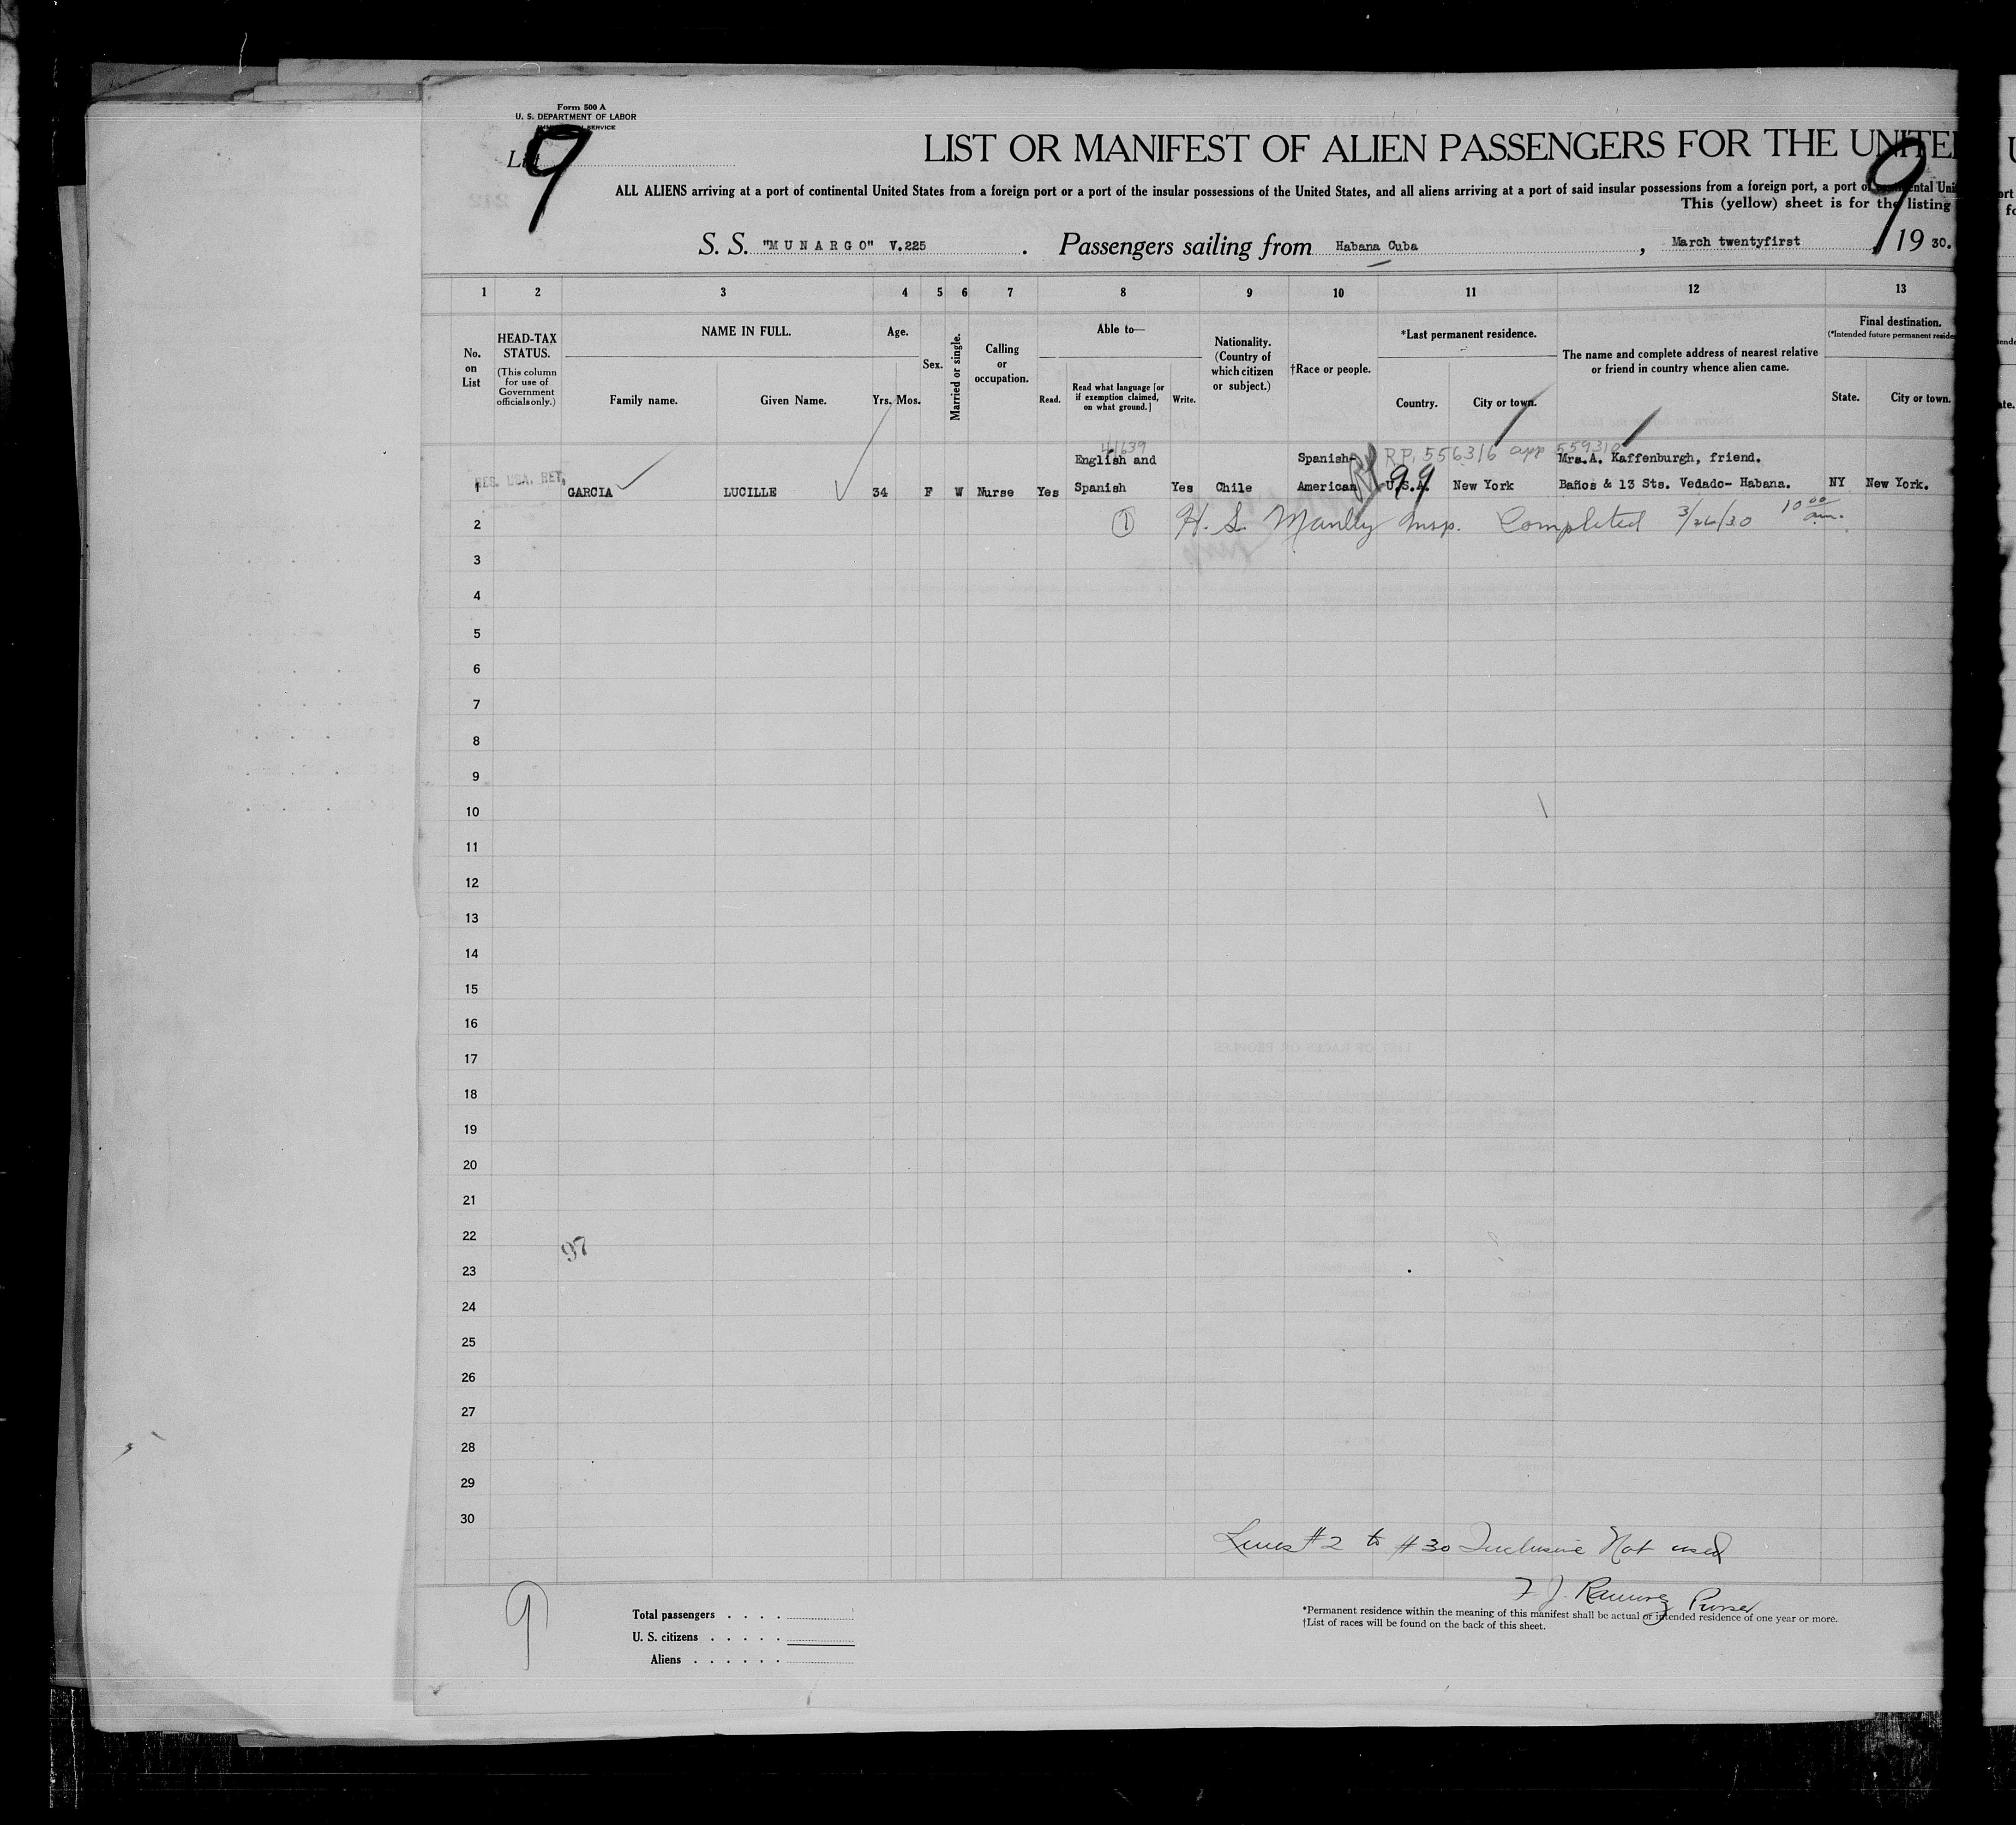 Form 500 A
U. S. DEPARTMENT OF LABOR
SERVICE
9
9
LIST OR MANIFEST OF ALIEN PASSENGERS FOR THE UNITE
ALL ALIENS arriving at a port of continental United States from a foreign port or a port of the insular possessions of the United States, and all aliens arriving at a port of said insular possessions from a foreign port, a port of continental Uni
This (yellow) sheet is for the listing
S. S. "MUNARGO" V.225. Passengers sailing from Habana Cuba, March twentyfirst 19 30.
1 2 3 4 5 6 7 8 9 10 11 12 13
No. on List
HEAD-TAX STATUS.
(This column for use of Government officials only.)
NAME IN FULL.
Family name. Given Name.
Age.
Yrs. Mos.
Sex.
Married or single.
Calling or occupation.
Able to—
Read. Read what language [or if exemption claimed, on what ground.] Write.
Nationality. (Country of which citizen or subject.)
†Race or people.
*Last permanent residence.
Country. City or town.
The name and complete address of nearest relative or friend in country whence alien came.
Final destination.
State. City or town.
41639 R.P. 556316 app 559310
English and Spanish- Mrs.A. Kaffenburgh, friend.
1 RES. USA. RET. GARCIA LUCILLE 34 F W Nurse Yes Spanish Yes Chile American U.S.A. 99 New York Baños & 13 Sts. Vedado- Habana. NY New York.
2 1 H. S. Manley Insp. Completed 3/26/30 10 00 am.
3
4
5
6
7
8
9
10
11
12
13
14
15
16
17
18
19
20
21
22
97
23
24
25
26
27
28
29
30
Lines #2 to #30 Inclusive Not used
F. J. Ramirez Purser
9
Total passengers
U. S. citizens
Aliens
*Permanent residence within the meaning of this manifest shall be actual or intended residence of one year or more.
†List of races will be found on the back of this sheet.